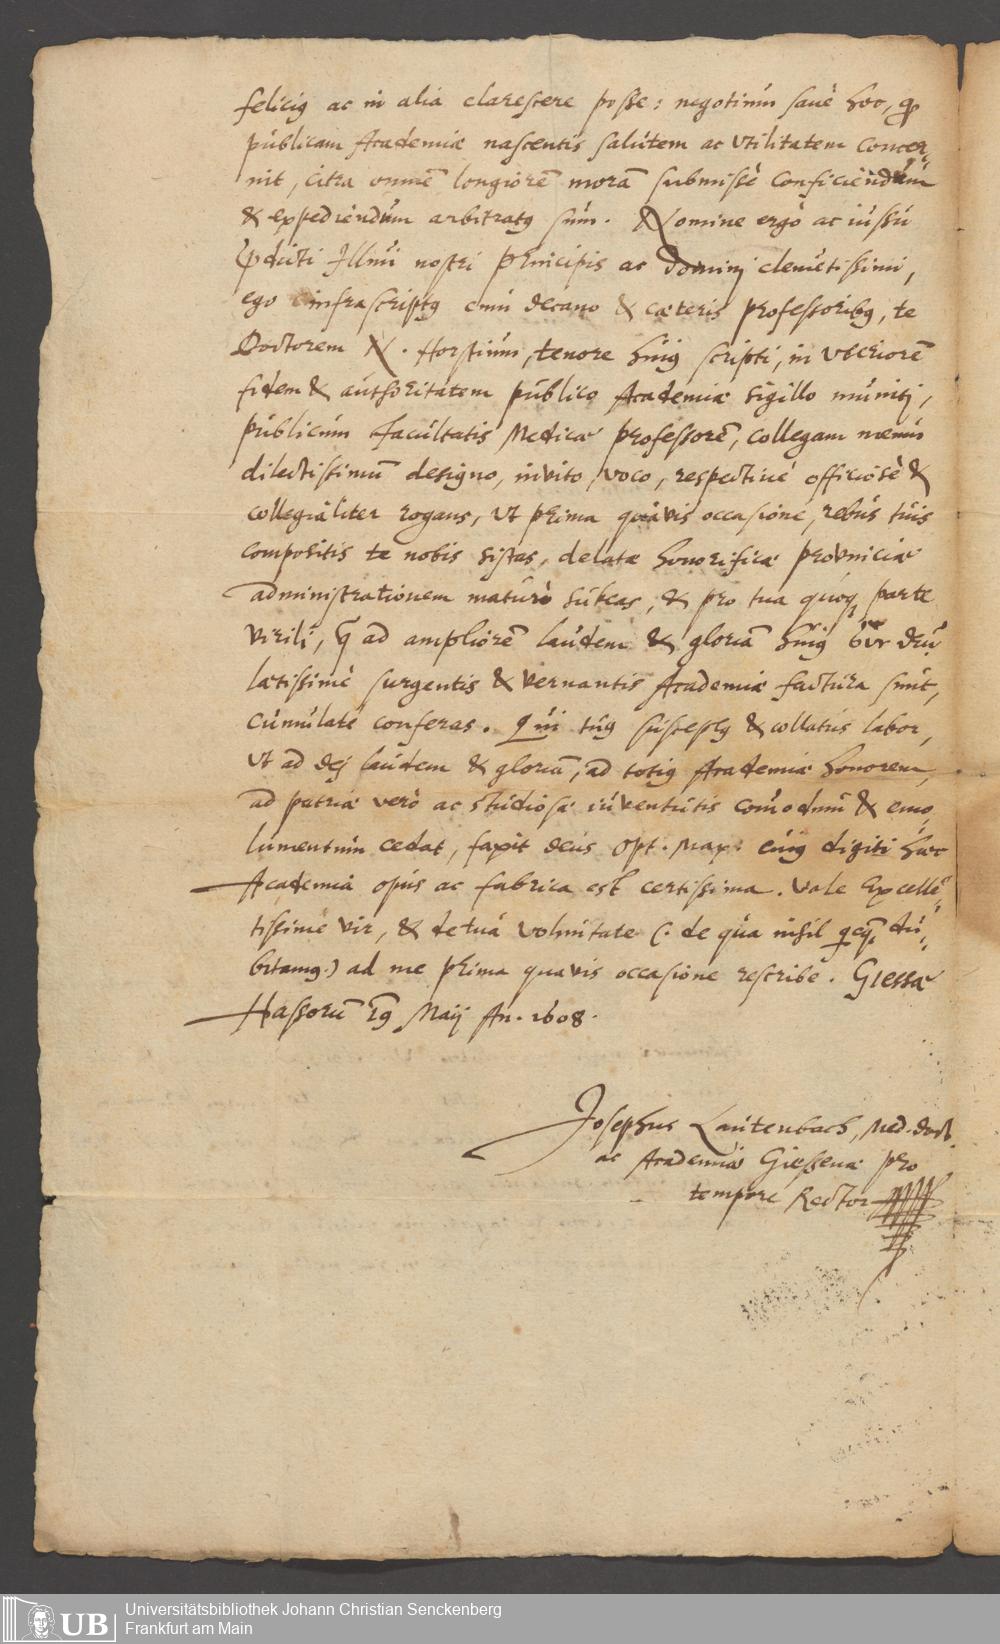 feliciꝰ ac in alia clarescere posse: negotium sanè hoc, qd
publicam Academiæ nascentis salutem ac vtilitatem concer-
nit, citra omnẽ longiorẽ morã submissè conficiendum
& expediendum arbitratꝰ sum. Nomine ergò ac iussu
p̃dicti Illmi nostri Principis ac Domini clemẽtissimi,
ego infrascriptꝰ cum decano & cæteris professoribꝰ, te
Doctorem N. Horstium, tenore huiꝰ scripti, in vberiorẽ
fidem & authoritatem publico Academiæ sigillo muniti,
publicum Facultatis Medicæ professorẽ, collegam meum
dilectissimũ designo, inuito, voco, respectiuè officiosè &
collegialiter rogans, vt prima quâvis occasione, rebus tuis
compositis te nobis sistas, delatæ honorificæ prouinciæ
administrationem maturè subeas, & pro tua quoq̨ parte
virili, q̃ ad ampliorẽ laudem & gloriã huiꝰ
latissimè surgentis & vernantis Academiæ factura sunt,
cumulatè conferas. Qui tuꝰ susceptꝰ & collatus labor,
vt ad dei laudem & gloriã, ad totiꝰ Academiæ honorem,
ad patriæ verò ac studiosæ iuventutis com̃odum & emo-
lumentum cedat, faxit deus Opt. Max. cuiꝰ digiti hæc
Academia opus ac fabrica est certissima. Vale Excellẽ-
tissime vir, & de tuâ voluntate (. de quâ nihil qcq̃ du-
bitamꝰ.) ad me prima quavis occasione rescribe. Giessæ
Hassorũ 19 Maij An. 1608.
Josephus Lautenbach, Med. Doct.
ac Academiæ Giessenæ pro
tempore Rector
UB
Universitätsbibliothek Johann Christian Senckenberg
Frankfurt am Main